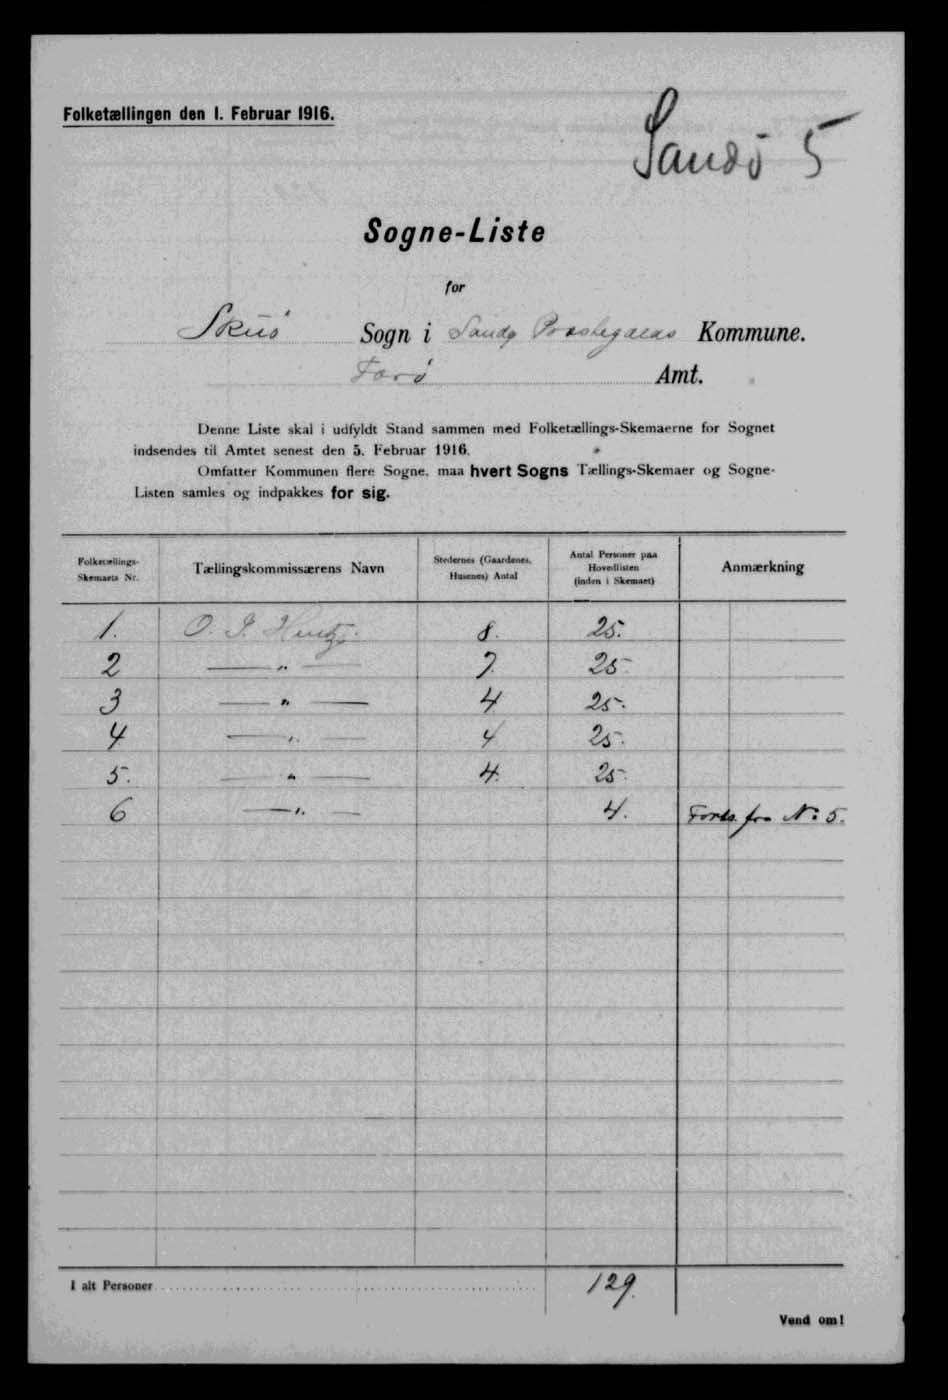 Folketællingen den 1. Februar 1916.
Sandö 5
Sogne-Liste
for
Skuö Sogn i Sandø Præstegælds Kommune.
Færö Amt.
Denne Liste skal i udfyldt Stand sammen med Folketællings-Skemaerne for Sognet
indsendes til Amtet senest den 5. Februar 1916.
Omfatter Kommunen flere Sogne, maa hvert Sogns Tællings-Skemaer og Sogne-
Listen samles og indpakkes for sig.
Folketællings-Skemaets Nr. Tællingskommissærens Navn Stedernes (Gaardenes, Husenes) Antal Antal Personer paa Hovedlisten (inden i Skemaet) Anmærkning
1. O. J. 8. 25.
2 — „ — 7. 25
3 — „ — 4 25.
4 — „ — 4 25.
5. — „ — 4. 25
6 — „ — 4. Forts. fra No 5.
I alt Personer 129.
Vend om!